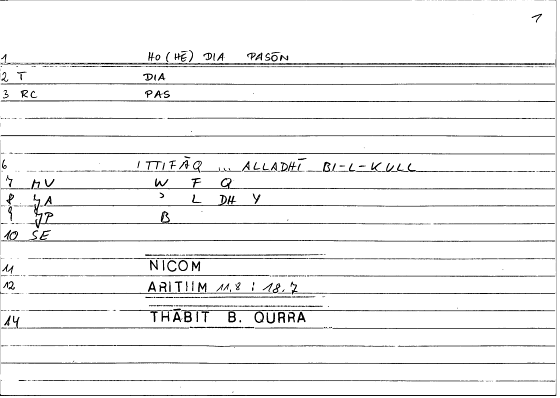 1
1 HO (HĒ) DIA PASŌN
2 T DIA
3 RC PAS
6 ITTIFĀQ ... ALLADHĪ BI-L-KULL
7 MV W F Q
8 ȜA ʾ L DH Y
9 ȜP B
10 SE
11 NICOM
12 ARITIIM 11,8 : 18,7
14 THĀBIT B. QURRA